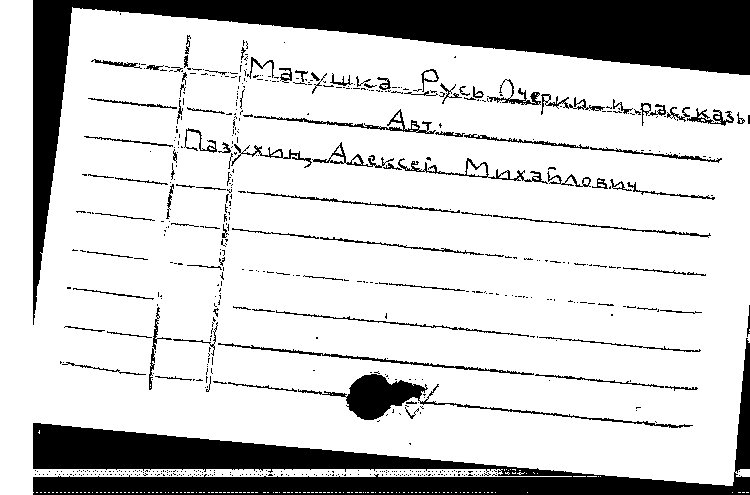 Матушка Русь Очерки и рассказы
Авт.
Пазухин, Алексей Михайлович